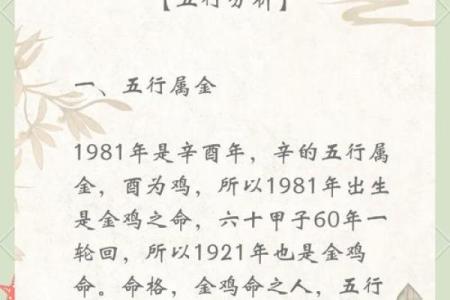 【五行分析】
一、五行属金
1981年是辛酉年，辛的五行属
金，酉为鸡，所以1981年出生
是金鸡之命，六十甲子60年一
轮回，所以1921年也是金鸡
命。命格，金鸡命之人，五行